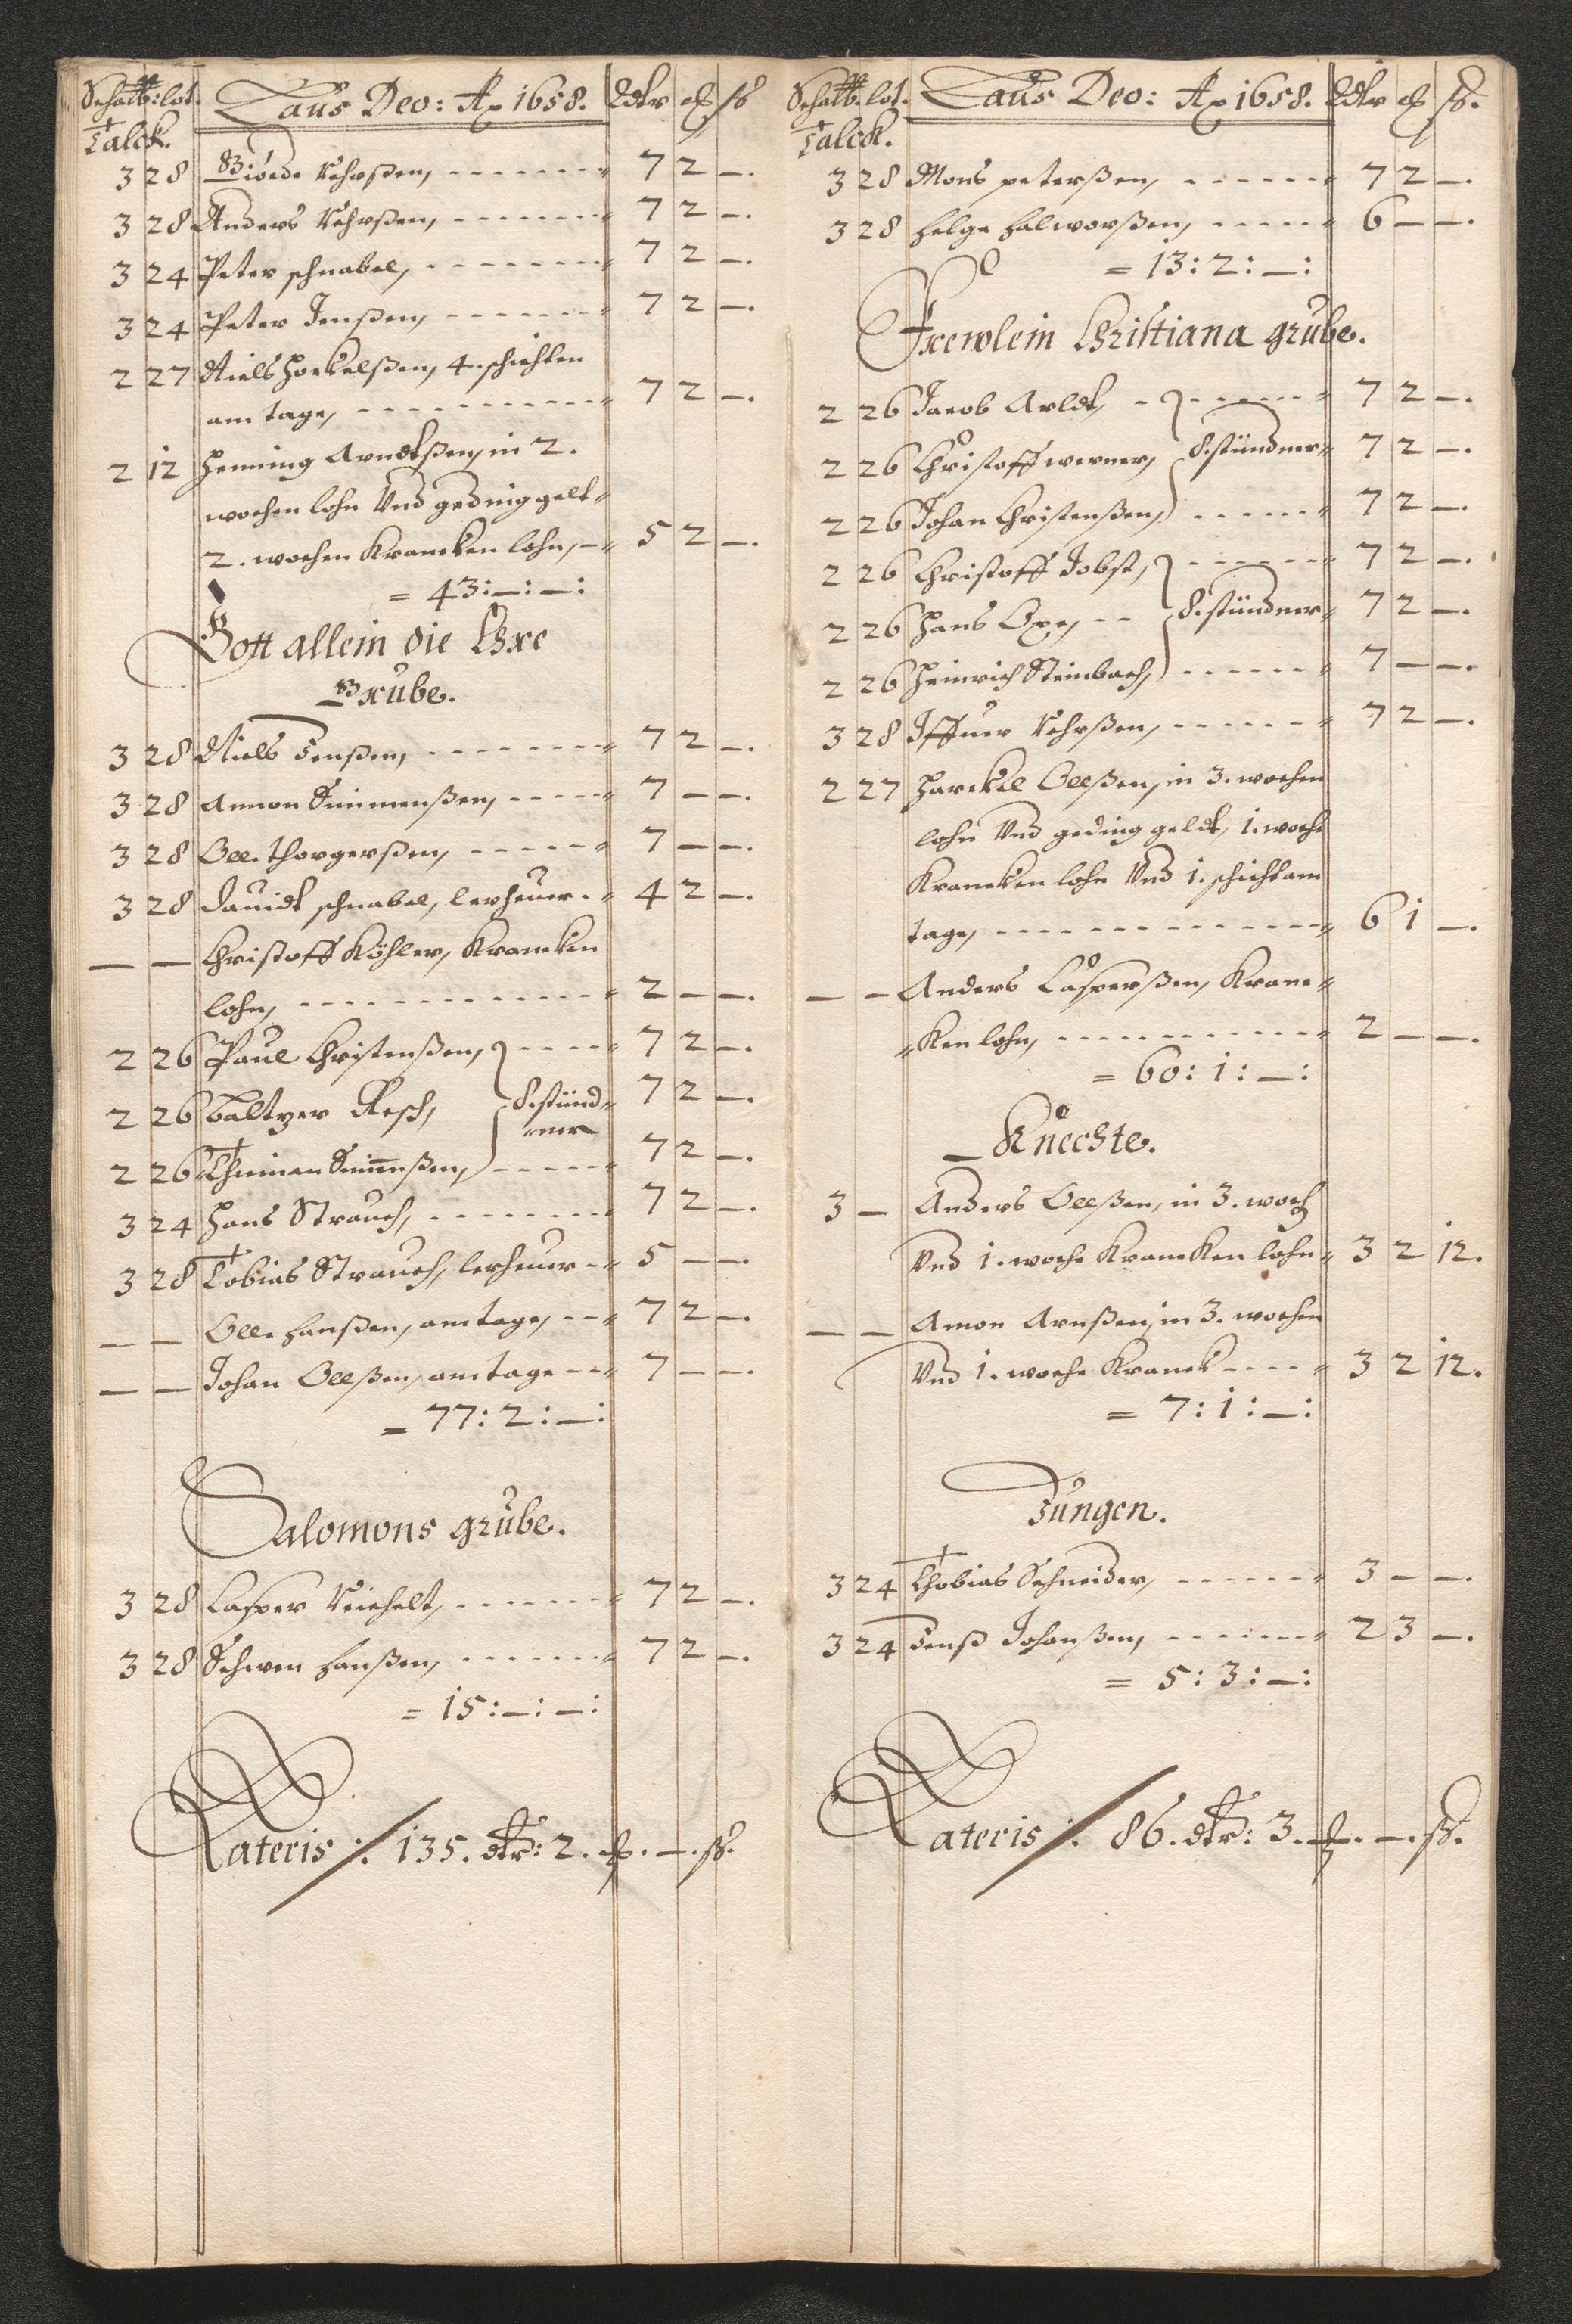 Laus Deo: Ao 1658.
Talck.
3 28 Biörde Rohrßen, 7 2 —.
3 28 Anders Rohrßen, 7 2 —.
3 24 Peter schnabel, 7 2 —.
3 24 Peter Jenßen, 7 2 —.
2 27 Niels Torkelßen, 4. schichten
am tage, 7 2 —.
2 12 Henning Arndtßen, in 2.
wochen lohn Vnd geding gelt
2. wochen Krancken lohn, 5 2 —.
= 43: —: —:
Gott allein die Ehre
Grube.
3 28 Niels Jenßen, 7 2 —.
3 28 Amon Simmenßen, 7 — —.
3 28 Olle Thorgerßen, 7 — —.
3 28 Dauidt schnabel, lerheuer 4 2 —.
— — Christoff Köhler, Krancken
lohn, 2 — —.
2 26 Paul Christenßen, 7 2 —.
2 26 Baltzer Resch, 8. stünd= 7 2 —.
ner
2 26 Thuman Simenßen, 7 2 —.
3 24 Hans Strauch, 7 2 —.
3 28 Tobias Strauch, lerheuer 5 — —.
— — Olle Hanßen, am tage, 7 2 —.
— — Johan Olleßen, am tage 7 — —.
= 77: 2: —:
Salomons grube.
3 28 Casper Reichelt, 7 2 —.
3 28 Schwen Hanßen, 7 2 —.
= 15: —: —:
Lateris ./. 135. dtr: 2. —. ß.
Laus Deo: Ao 1658.
Talck.
3 28 Mons peterßen, 7 2 —.
3 28 Helge Halworßen, 6 — —.
= 13: 2: —:
Frewlein Christiana grube.
2 26 Jacob Arldt, 7 2 —.
2 26 Christoff werner, 8. stündner 7 2 —.
2 26 Johan Christenßen, 7 2 —.
2 26 Christoff Jobst, 7 2 —.
2 26 Hans Oxe, 8. stündner 7 2 —.
2 26 Heinrich Steinbach, 7 — —.
3 28 Iffuer Rohrßen, 7 2 —.
2 27 Harckel Olleßen, in 3. wochen
lohn Vnd geding geldt, 1. woche
Krancken lohn Vnd 1. schicht am
tage, 6 1 —.
— — Anders Casperßen, Kranc=
=Ken lohn, 2 — —.
= 60: 1: —:
Knechte.
3 — Anders Olleßen, in 3. woch
Vnd 1. woche Krancken lohn 3 2 12.
— — Amon Arnßen, in 3. wochen
Vnd 1. woche Kranck 3 2 12.
= 7: 1: —:
Jungen.
3 24 Thobias Schneider, 3 — —.
3 24 Jenß Johanßen, 2 3 —.
= 5: 3: —:
Lateris ./. 86. dtr: 3. —. ß.